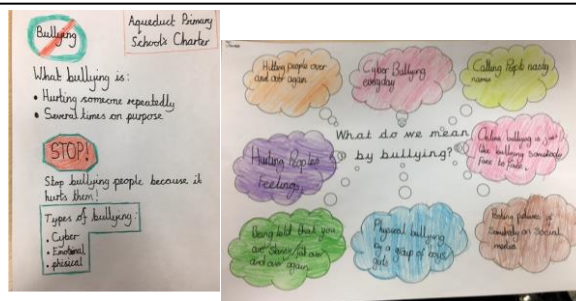 Bullying
Aqueduct Primary
School's Charter
What bullying is:
• Hurting someone repeatedly
• Several times on purpose
STOP!
Stop bullying people because it
hurts them!
Types of bullying:
• Cyber
• Emotional
• phisical
Hitting people over
and over again
Cyber Bullying
everyday
Calling People nasty
names
What do we mean
by bullying?
Hurting Peoples
feelings
Online bullying is just
like bullying somebody
face to face.
Being told that you
are
over
and over again
Physical bullying
by a group of boys/
girls
Posting pictures of
Somebody on Social
media